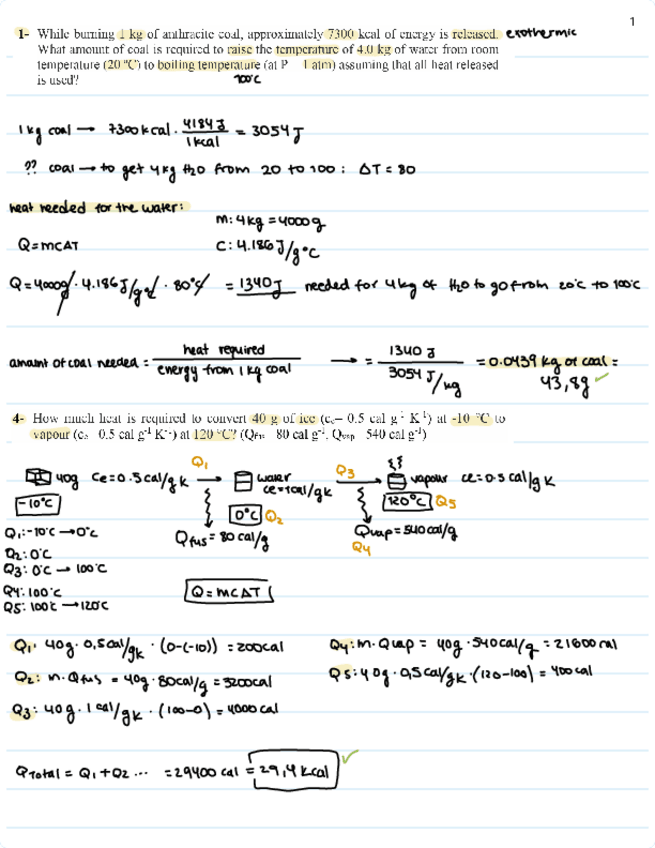 1
1- While burning 1 kg of anthracite coal, approximately 7300 kcal of energy is released. exothermic
What amount of coal is required to raise the temperature of 4.0 kg of water from room
temperature (20 °C) to boiling temperature (at P 1 atm) assuming that all heat released
is used?
100°C
1 kg coal → 7300 kcal · 4184 J / 1 kcal = 3054 J
?? coal → to get 4 kg H2O from 20 to 100 : ΔT = 80
heat needed for the water:
m: 4 kg = 4000 g
Q = mCΔT
C: 4.186 J/g°C
Q = 4000g · 4.186 J/g°C · 80°C = 1340 J needed for 4 kg of H2O to go from 20°C to 100°C
amount of coal needed = heat required / energy from 1 kg coal → = 1340 J / 3054 J/kg = 0.0439 kg of coal =
43,8g ✓
4- How much heat is required to convert 40 g of ice (ce= 0.5 cal g-1 K-1) at -10 °C to
vapour (ce 0.5 cal g-1 K-1) at 120 °C? (Qfus 80 cal g-1, Qvap 540 cal g-1)
40g Ce=0.5cal/gK Q1 → water Q3 → vapour ce=0.5 cal/gK
ce=1cal/gK
-10°C 0°C Q2 120°C Q5
Q1: -10°C → 0°C Qfus = 80 cal/g Qvap = 540 cal/g
Q2: 0°C Q4
Q3: 0°C → 100°C
Q4: 100°C Q = mCΔT
Q5: 100°C → 120°C
Q1: 40g · 0,5cal/gK · (0-(-10)) = 200cal Q4: m · Qvap = 40g · 540cal/g = 21600 cal
Q2: m · Qfus = 40g · 80cal/g = 3200cal Q5: 40g · 0,5cal/gK · (120-100) = 400 cal
Q3: 40g · 1 cal/gK · (100-0) = 4000 cal
QTotal = Q1 + Q2 ... = 29400 cal = 29,4 kcal ✓